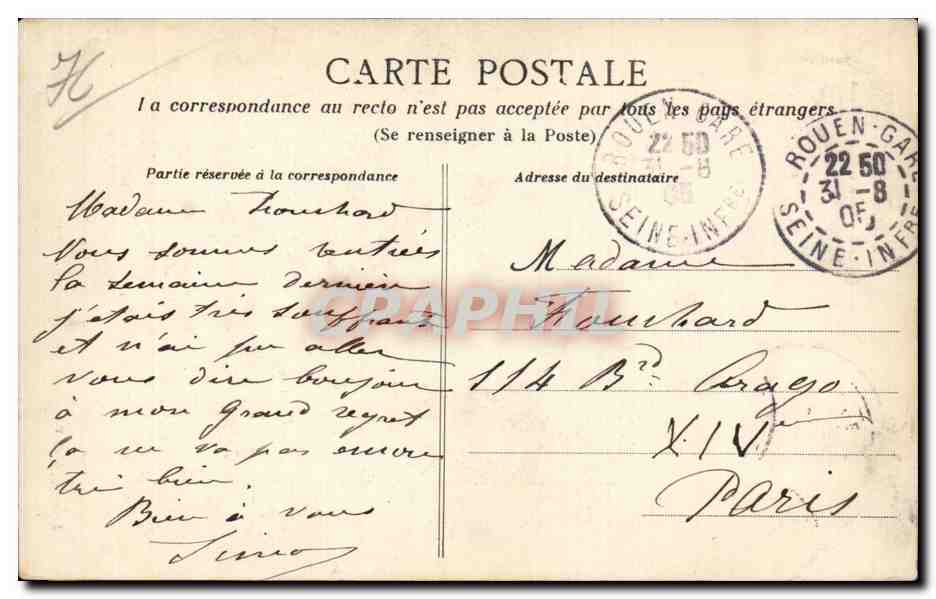 H
CARTE POSTALE
La correspondance au recto n'est pas acceptée par tous les pays étrangers
(Se renseigner à la Poste)
Partie réservée à la correspondance
Madame Fouchard
Nous sommes rentrés
la semaine dernière
j'étais très souffrant
et n'ai pu aller
vous dire bonjour
à mon grand regret
ça ne va pas encore
très bien.
Bien à vous
Adresse du destinataire
Madame
Fouchard
114 Bd Arago
XIV
Paris
ROUEN-GARE
22 50
31 -8
05
SEINE-INFRE
ROUEN-GARE
22 50
31 -8
05
SEINE-INFRE
CPAPHIL